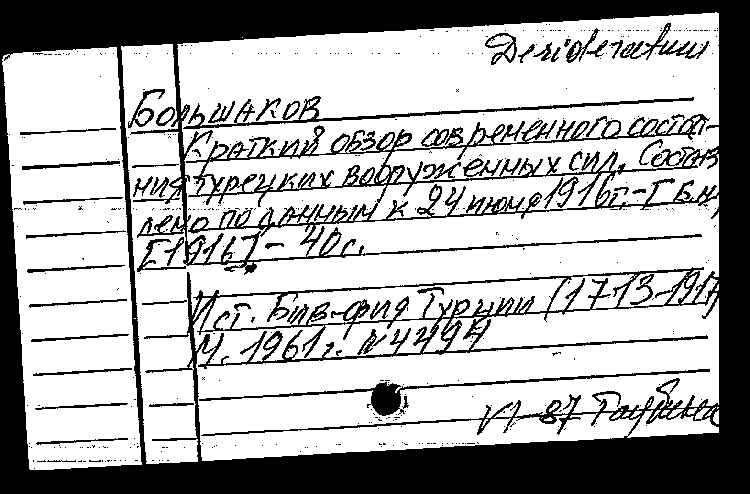 Desideratum
Большаков
Краткий обзор современного состоя-
ния турецких вооруженных сил. Состав
лено по данным к 24 июня 1916 г. - [Б.м.,
[1916] - 40 с.
Ист. Биб-фия Турции (1713-1917)
М. 1961 г. № 4494
VI 87